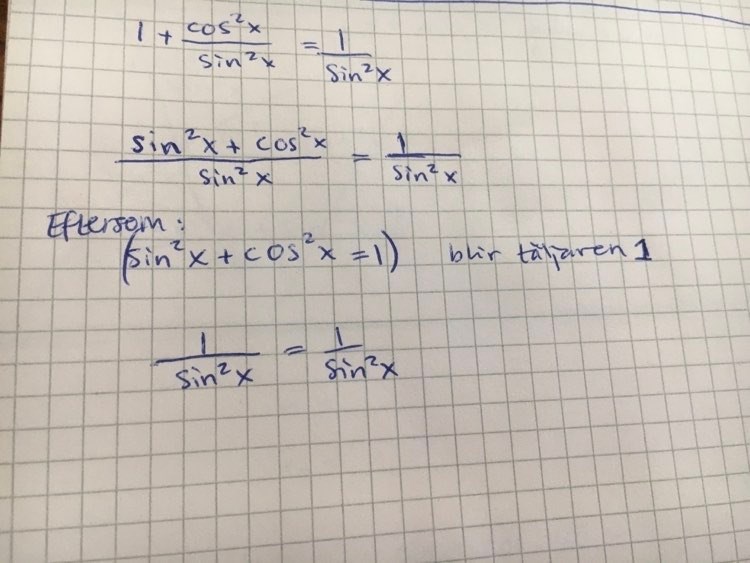 1 + cos²x/sin²x = 1/sin²x
sin²x + cos²x/sin²x = 1/sin²x
Eftersom:
(sin²x + cos²x = 1) blir täljaren 1
1/sin²x = 1/sin²x